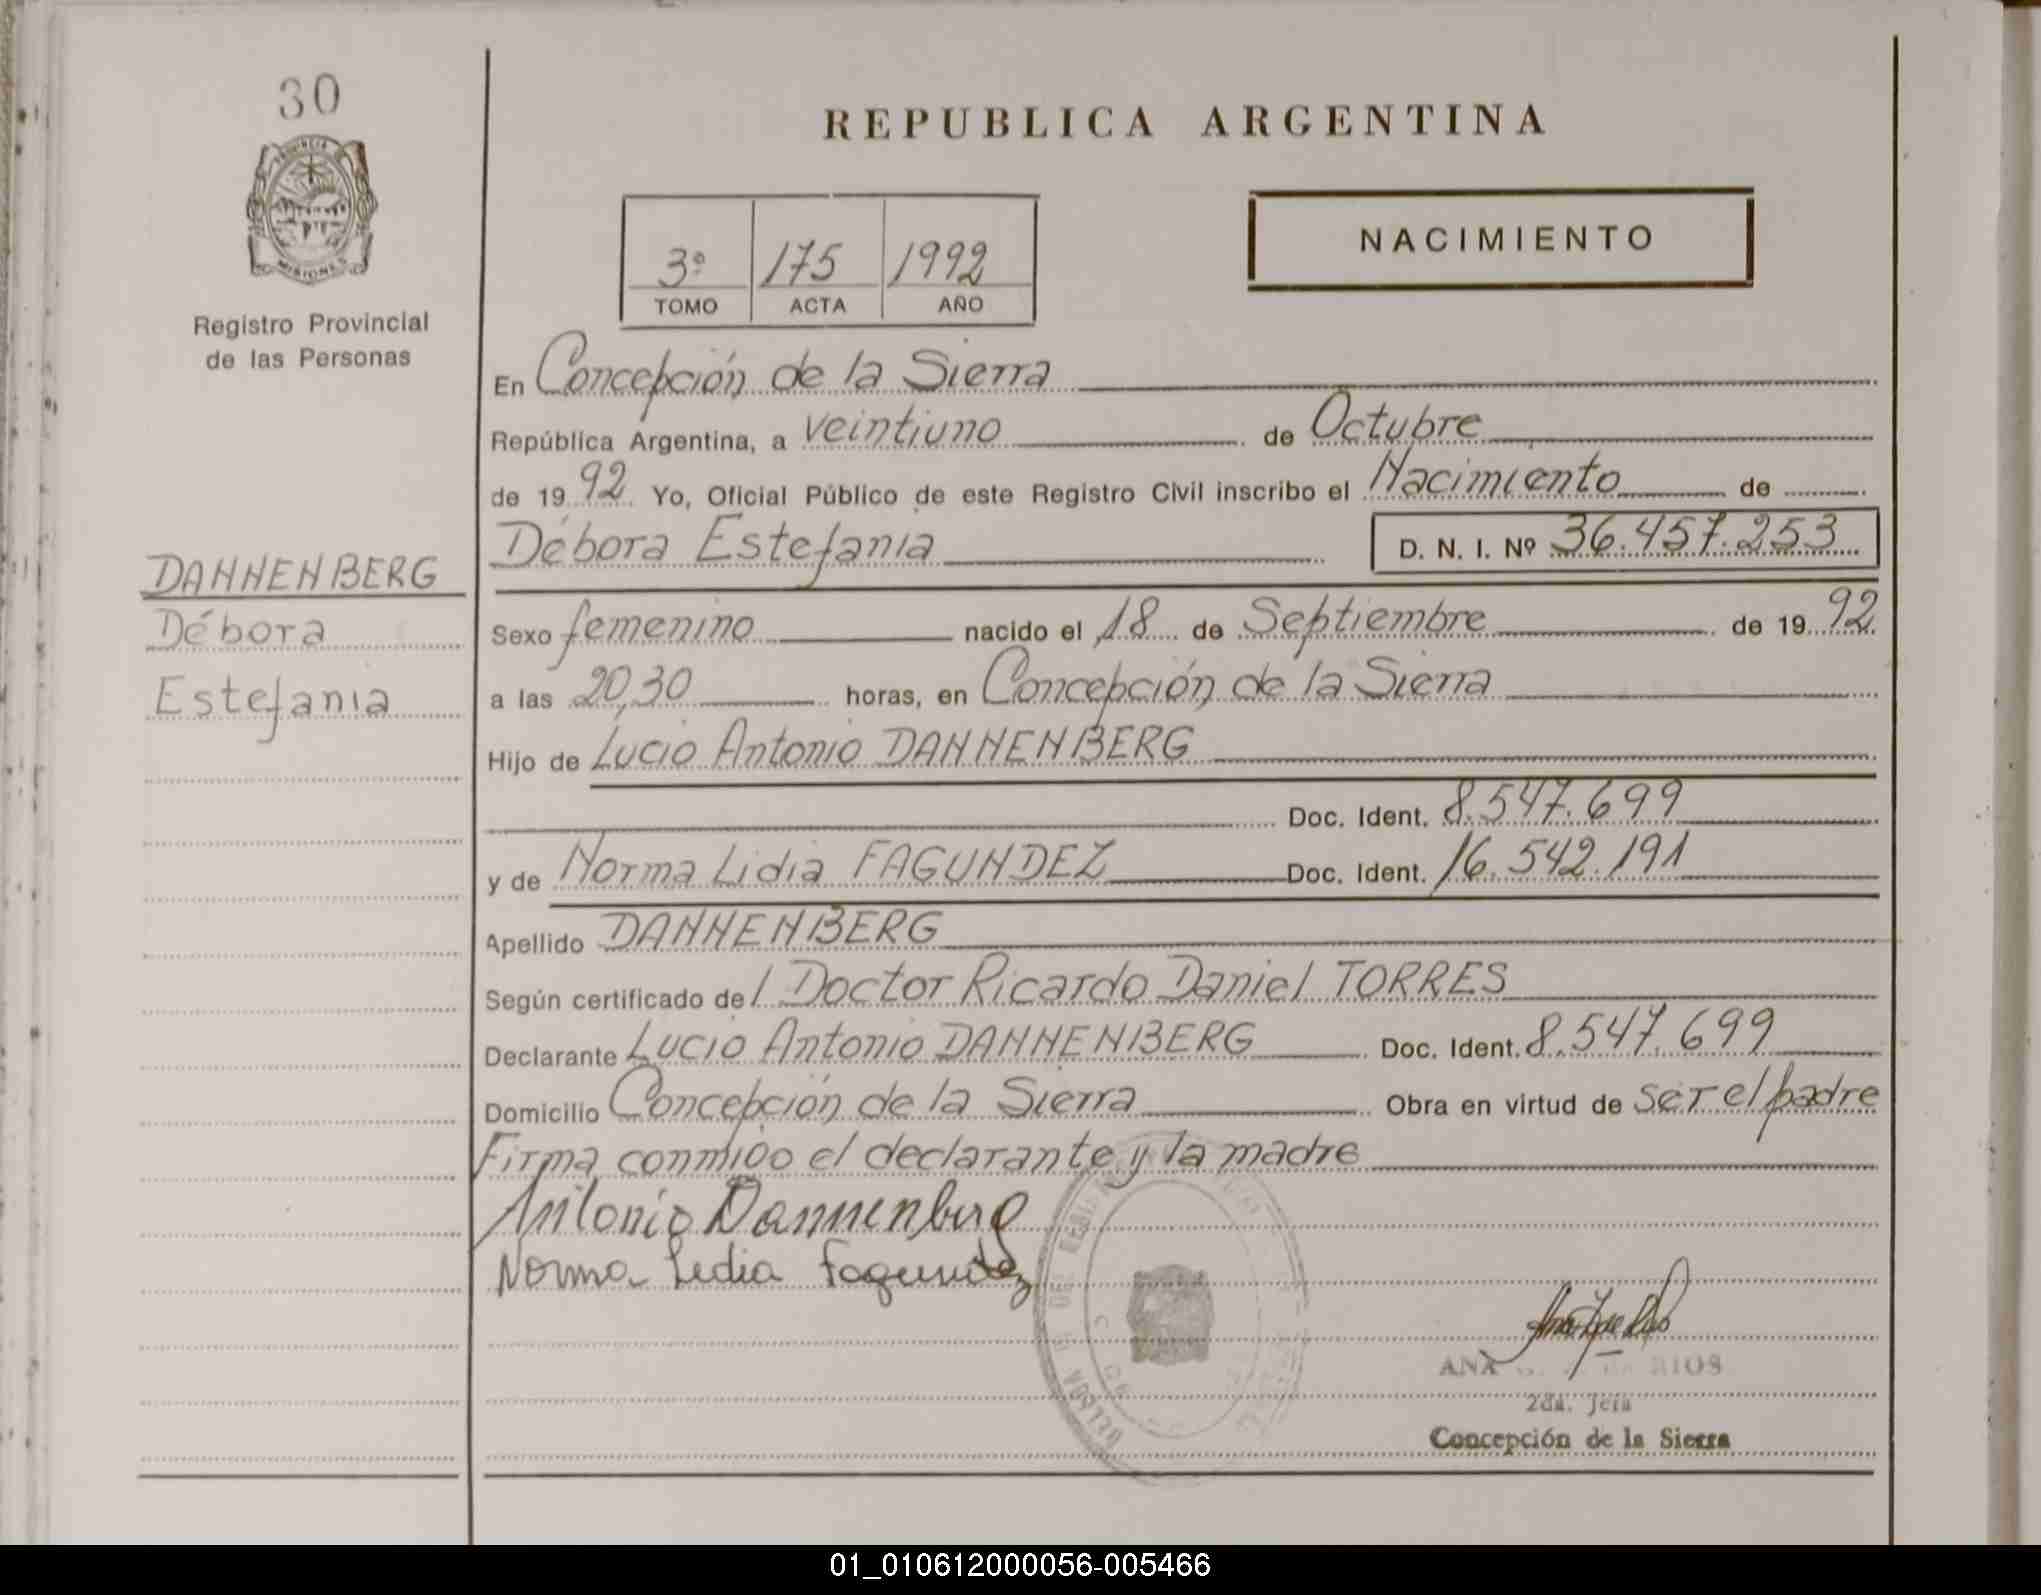 30
PROVINCIA DE
MISIONES
Registro Provincial
de las Personas
DANNENBERG
Débora
Estefania
REPUBLICA ARGENTINA
3º 175 1992
TOMO ACTA AÑO
NACIMIENTO
En Concepción de la Sierra
República Argentina, a veintiuno de Octubre
de 1992 Yo, Oficial Público de este Registro Civil inscribo el Nacimiento de
Débora Estefania D. N. I. Nº 36.457.253
Sexo femenino nacido el 18 de Septiembre de 1992
a las 20,30 horas, en Concepción de la Sierra
Hijo de Lucio Antonio DANNENBERG
Doc. Ident. 8.547.699
y de Norma Lidia FAGUNDEZ Doc. Ident. 16.542.191
Apellido DANNENBERG
Según certificado del Doctor Ricardo Daniel TORRES
Declarante Lucio Antonio DANNENBERG Doc. Ident. 8.547.699
Domicilio Concepción de la Sierra Obra en virtud de ser el padre
Firma conmigo el declarante y la madre
Antonio Dannenberg
Norma Lidia Fagundez
ANA de RIOS
2da. Jefa
Concepción de la Sierra
01_010612000056-005466